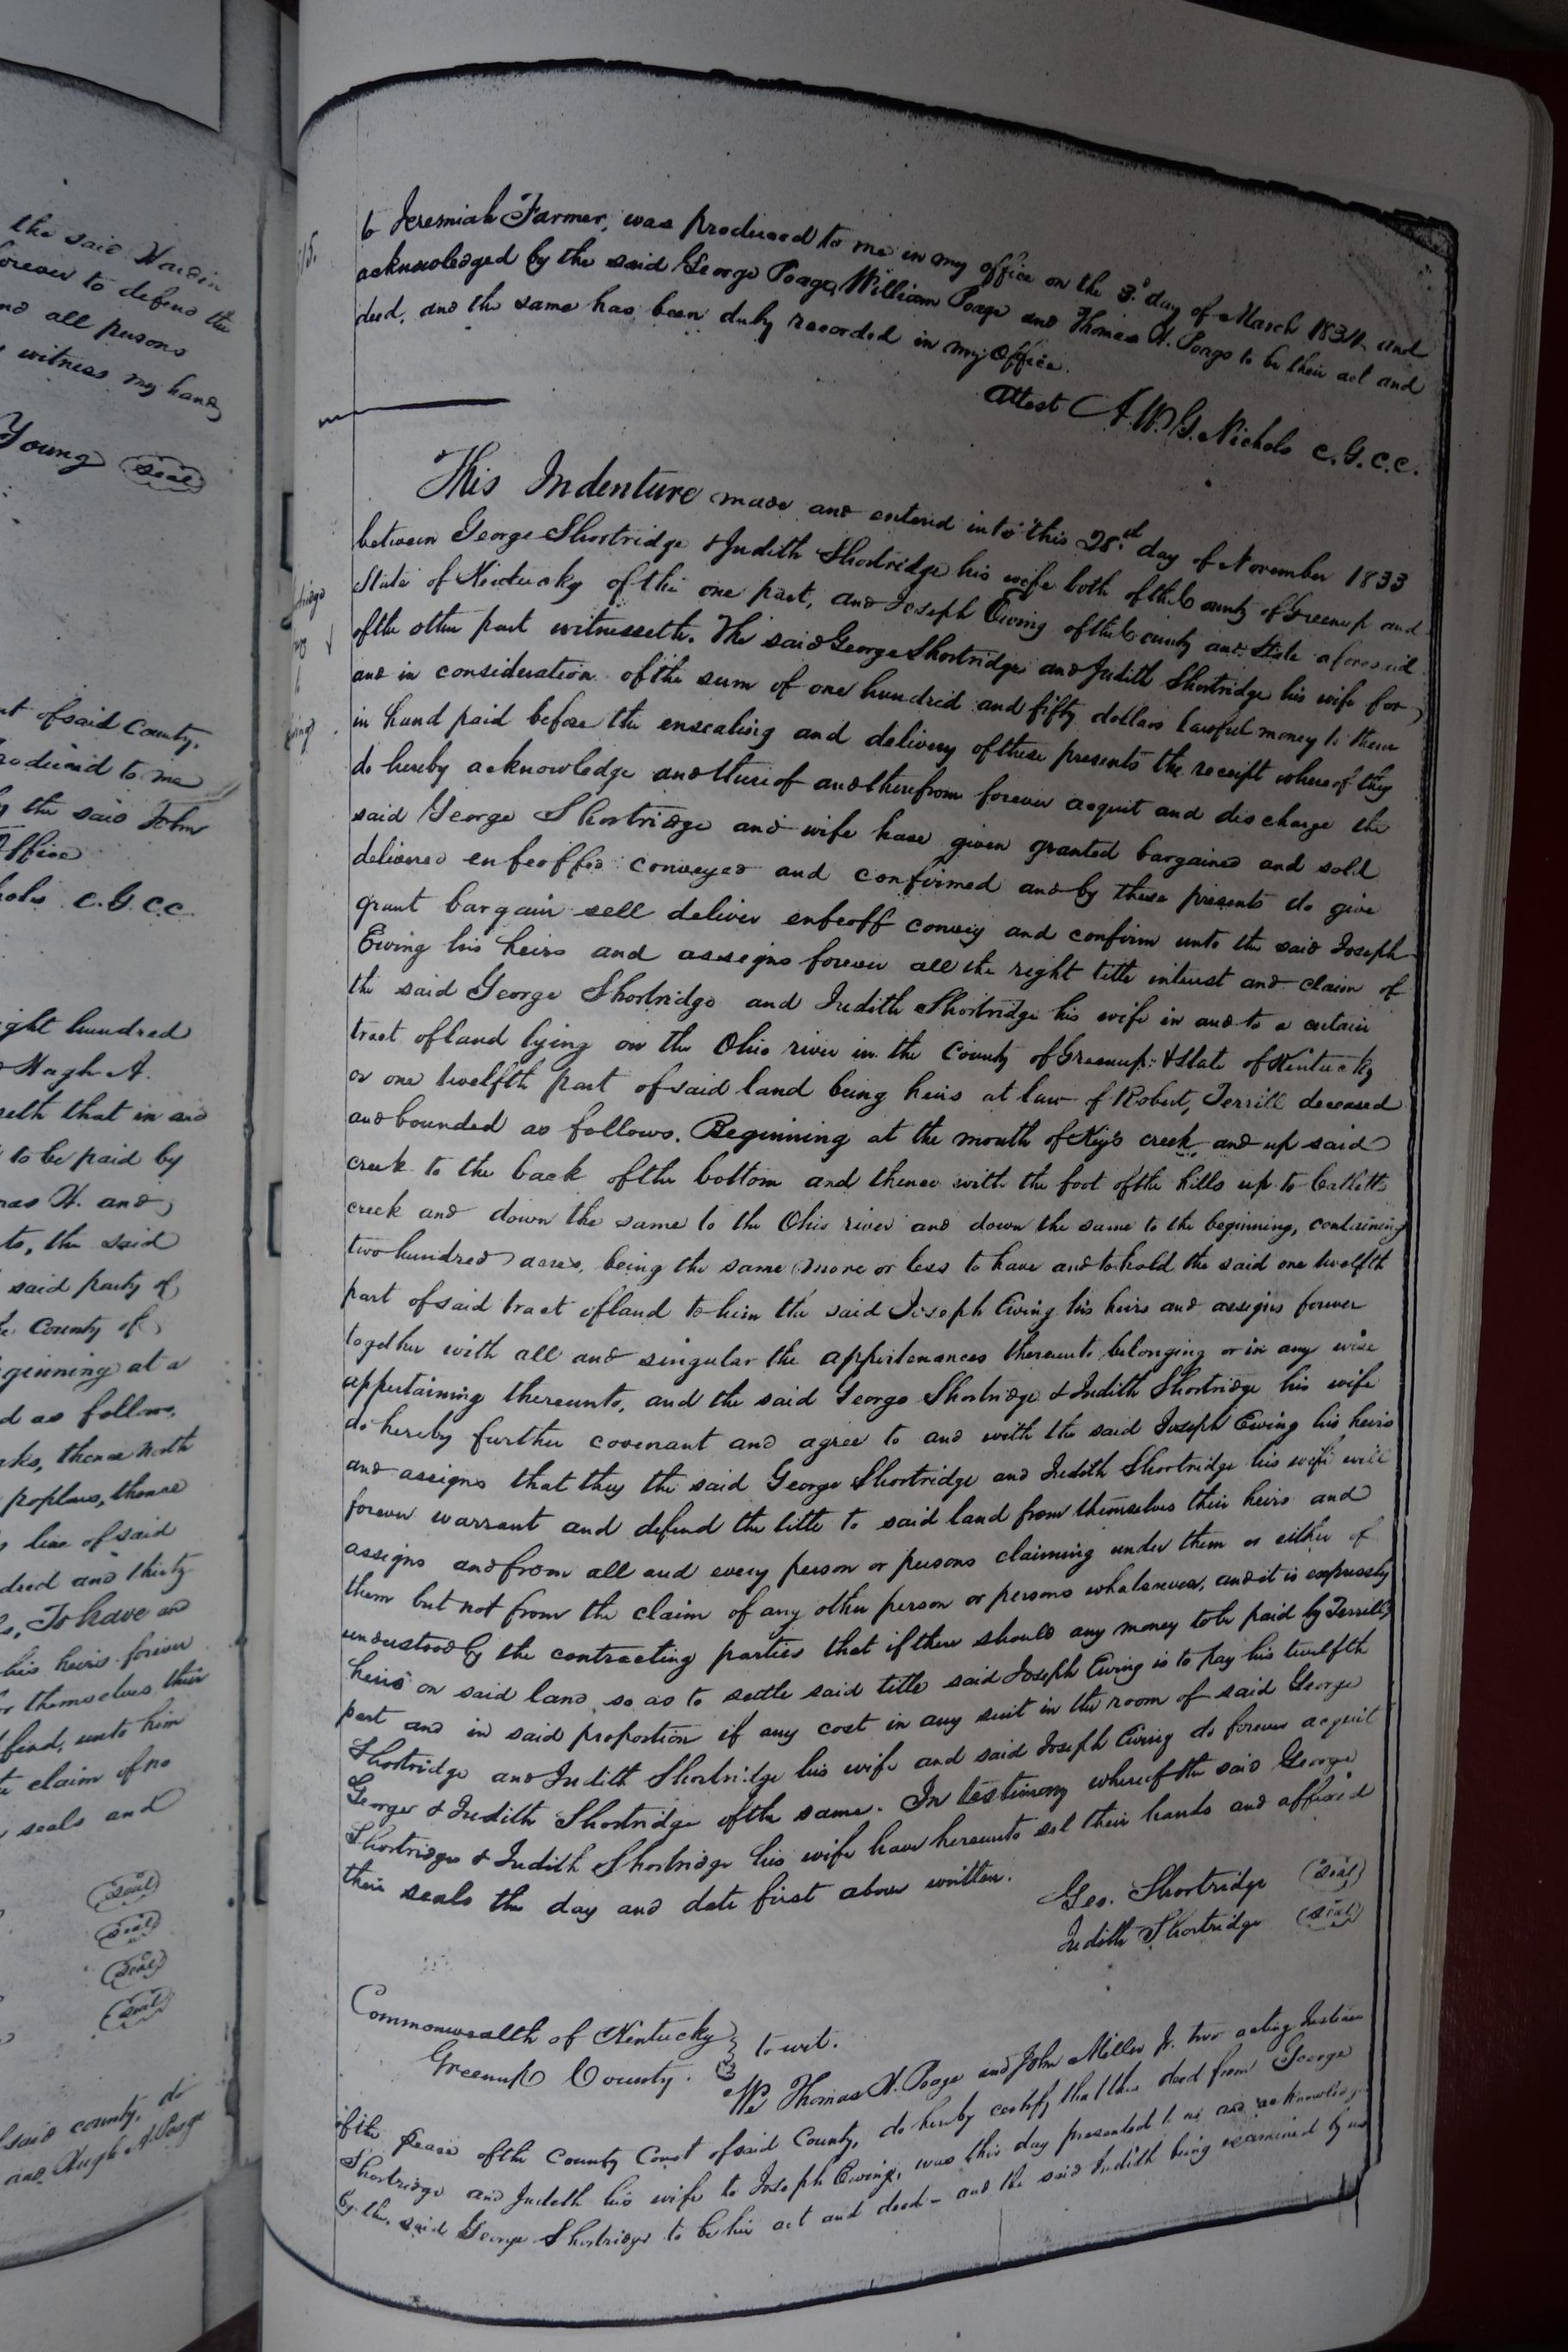 the said Hardin
forever to defend the
and all persons
witness my hand
Young (seal)
of said County,
produced to me
by the said John
Office
Nichols C.G.C.C.
eight hundred
Hugh A.
seth that in and
to be paid by
Thomas H. and
to, the said
said party of
County of
Beginning at a
d as follows,
thence North
poplars, thence
line of said
dred and thirty
To have and
his heirs forever
for themselves their
defend, unto him
claim of no
seals and
(seal)
(seal)
(seal)
(seal)
said county, do
and Hugh A. Poage
to Jeremiah Farmer, was produced to me in my office on the 3d day of March 1834 and
acknowledged by the said George Poage, William Poage and Thomas H. Poage to be their act and
deed, and the same has been duly recorded in my office.
Attest A.W.G. Nichols C.G.C.C.
This Indenture made and entered into this 28th day of November 1833
between George Shortridge & Judith Shortridge his wife both of the County of Greenup and
State of Kentucky of the one part, and Joseph Ewing of the County and State aforesaid
of the other part witnesseth. The said George Shortridge and Judith Shortridge his wife for
and in consideration of the sum of one hundred and fifty dollars lawful money to them
in hand paid before the ensealing and delivery of these presents the receipt whereof they
do hereby acknowledge and thereof and therefrom forever acquit and discharge the
said George Shortridge and wife have given granted bargained and sold
delivered enfeoffed conveyed and confirmed and by these presents do give
grant bargain sell deliver enfeoff convey and confirm unto the said Joseph
Ewing his heirs and assigns forever all the right title interest and claim of
the said George Shortridge and Judith Shortridge his wife in and to a certain
tract of land lying on the Ohio river in the County of Greenup & State of Kentucky
or one twelfth part of said land being heirs at law of Robert, Terrill deceased
and bounded as follows. Beginning at the mouth of Key's creek and up said
creek to the back of the bottom and thence with the foot of the hills up to Catletts
creek and down the same to the Ohio river and down the same to the beginning, containing
two hundred acres, being the same more or less to have and to hold the said one twelfth
part of said tract of land to him the said Joseph Ewing his heirs and assigns forever
together with all and singular the appertenances thereunto belonging or in any wise
appertaining thereunto, and the said George Shortridge & Judith Shortridge his wife
do hereby further covenant and agree to and with the said Joseph Ewing his heirs
and assigns that they the said George Shortridge and Judith Shortridge his wife will
forever warrant and defend the title to said land from themselves their heirs and
assigns and from all and every person or persons claiming under them or either of
them but not from the claim of any other person or persons whatsoever, and it is expressly
understood by the contracting parties that if there should any money to be paid by Terrill's
heirs on said land so as to settle said title said Joseph Ewing is to pay his twelfth
part and in said proportion if any cost in any suit in the room of said George
Shortridge and Judith Shortridge his wife and said Joseph Ewing do forever acquit
George & Judith Shortridge of the same. In testimony whereof the said George
Shortridge & Judith Shortridge his wife have hereunto set their hands and affixed
their seals the day and date first above written.
Geo. Shortridge (seal)
Judith Shortridge (seal)
Commonwealth of Kentucky
Greenup County. } to wit.
We Thomas H. Poage and John Miller Jr. two acting Justices
of the peace of the County Court of said County, do hereby certify that this deed from George
Shortridge and Judith his wife to Joseph Ewing, was this day presented to us and acknowledged
by the said George Shortridge to be his act and deed - and the said Judith being examined by us